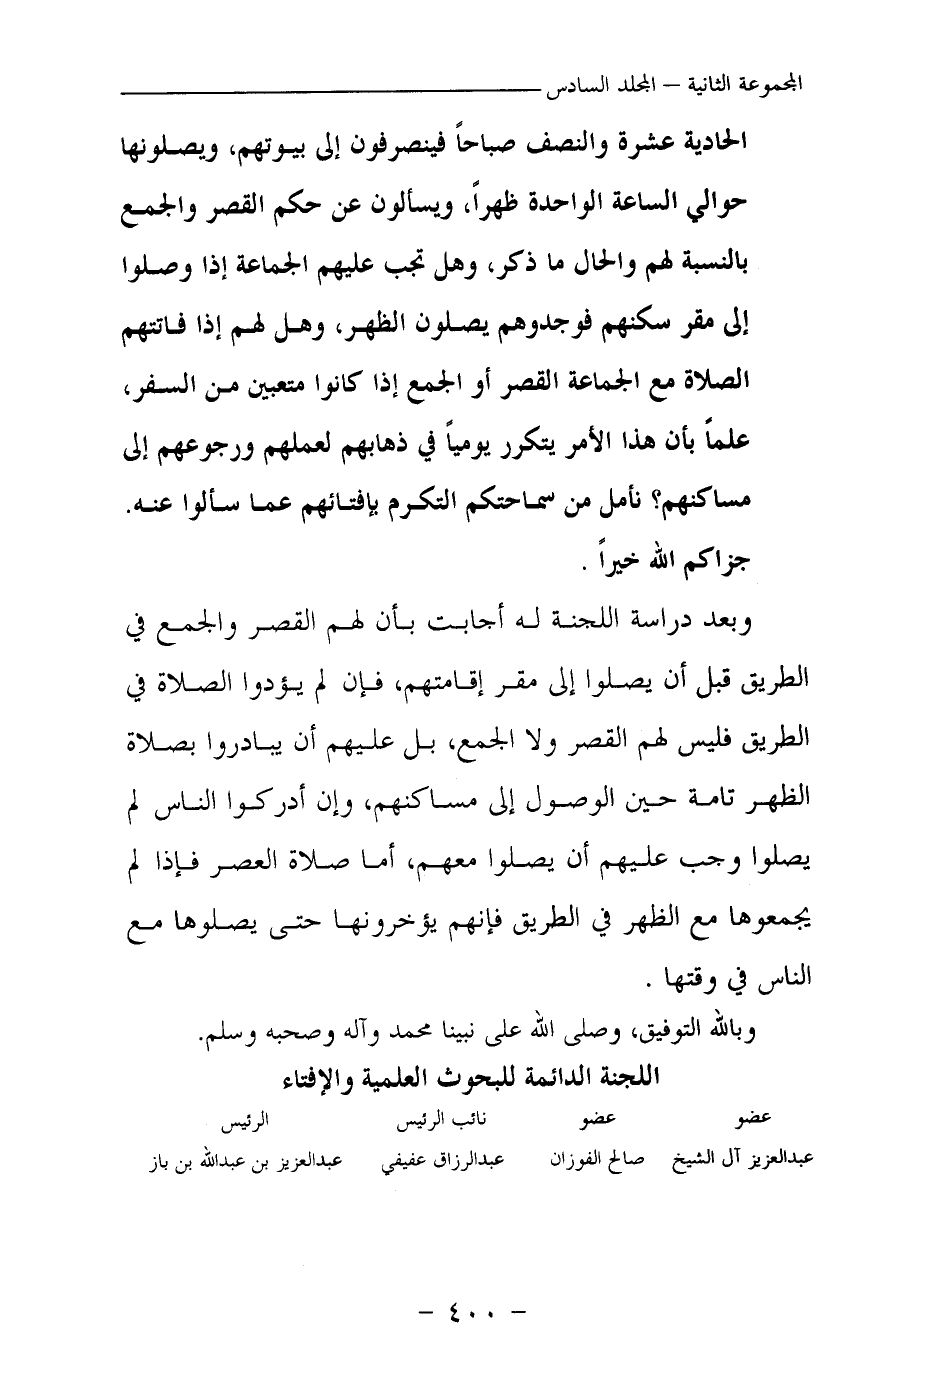 المجموعة الثانية – المجلد السادس
الحادية عشرة والنصف صباحاً فينصرفون إلى بيوتهم، ويصلونها
حوالي الساعة الواحدة ظهراً، ويسألون عن حكم القصر والجمع
بالنسبة لهم والحال ما ذكر، وهل تجب عليهم الجماعة إذا وصلوا
إلى مقر سكنهم فوجدوهم يصلون الظهر، وهل لهم إذا فاتتهم
الصلاة مع الجماعة القصر أو الجمع إذا كانوا متعبين من السفر،
علماً بأن هذا الأمر يتكرر يومياً في ذهابهم لعملهم ورجوعهم إلى
مساكنهم؟ نأمل من سماحتكم التكرم بإفتائهم عما سألوا عنه.
جزاكم الله خيراً .
وبعد دراسة اللجنة له أجابت بأن لهم القصر والجمع في
الطريق قبل أن يصلوا إلى مقر إقامتهم، فإن لم يؤدوا الصلاة في
الطريق فليس لهم القصر ولا الجمع، بل عليهم أن يبادروا بصلاة
الظهر تامة حين الوصول إلى مساكنهم، وإن أدركوا الناس لم
يصلوا وجب عليهم أن يصلوا معهم، أما صلاة العصر فإذا لم
يجمعوها مع الظهر في الطريق فإنهم يؤخرونها حتى يصلوها مع
الناس في وقتها .
وبالله التوفيق، وصلى الله على نبينا محمد وآله وصحبه وسلم.
اللجنة الدائمة للبحوث العلمية والإفتاء
عضو عضو نائب الرئيس الرئيس
عبدالعزيز آل الشيخ صالح الفوزان عبدالرزاق عفيفي عبدالعزيز بن عبدالله بن باز
– ٤٠٠ –